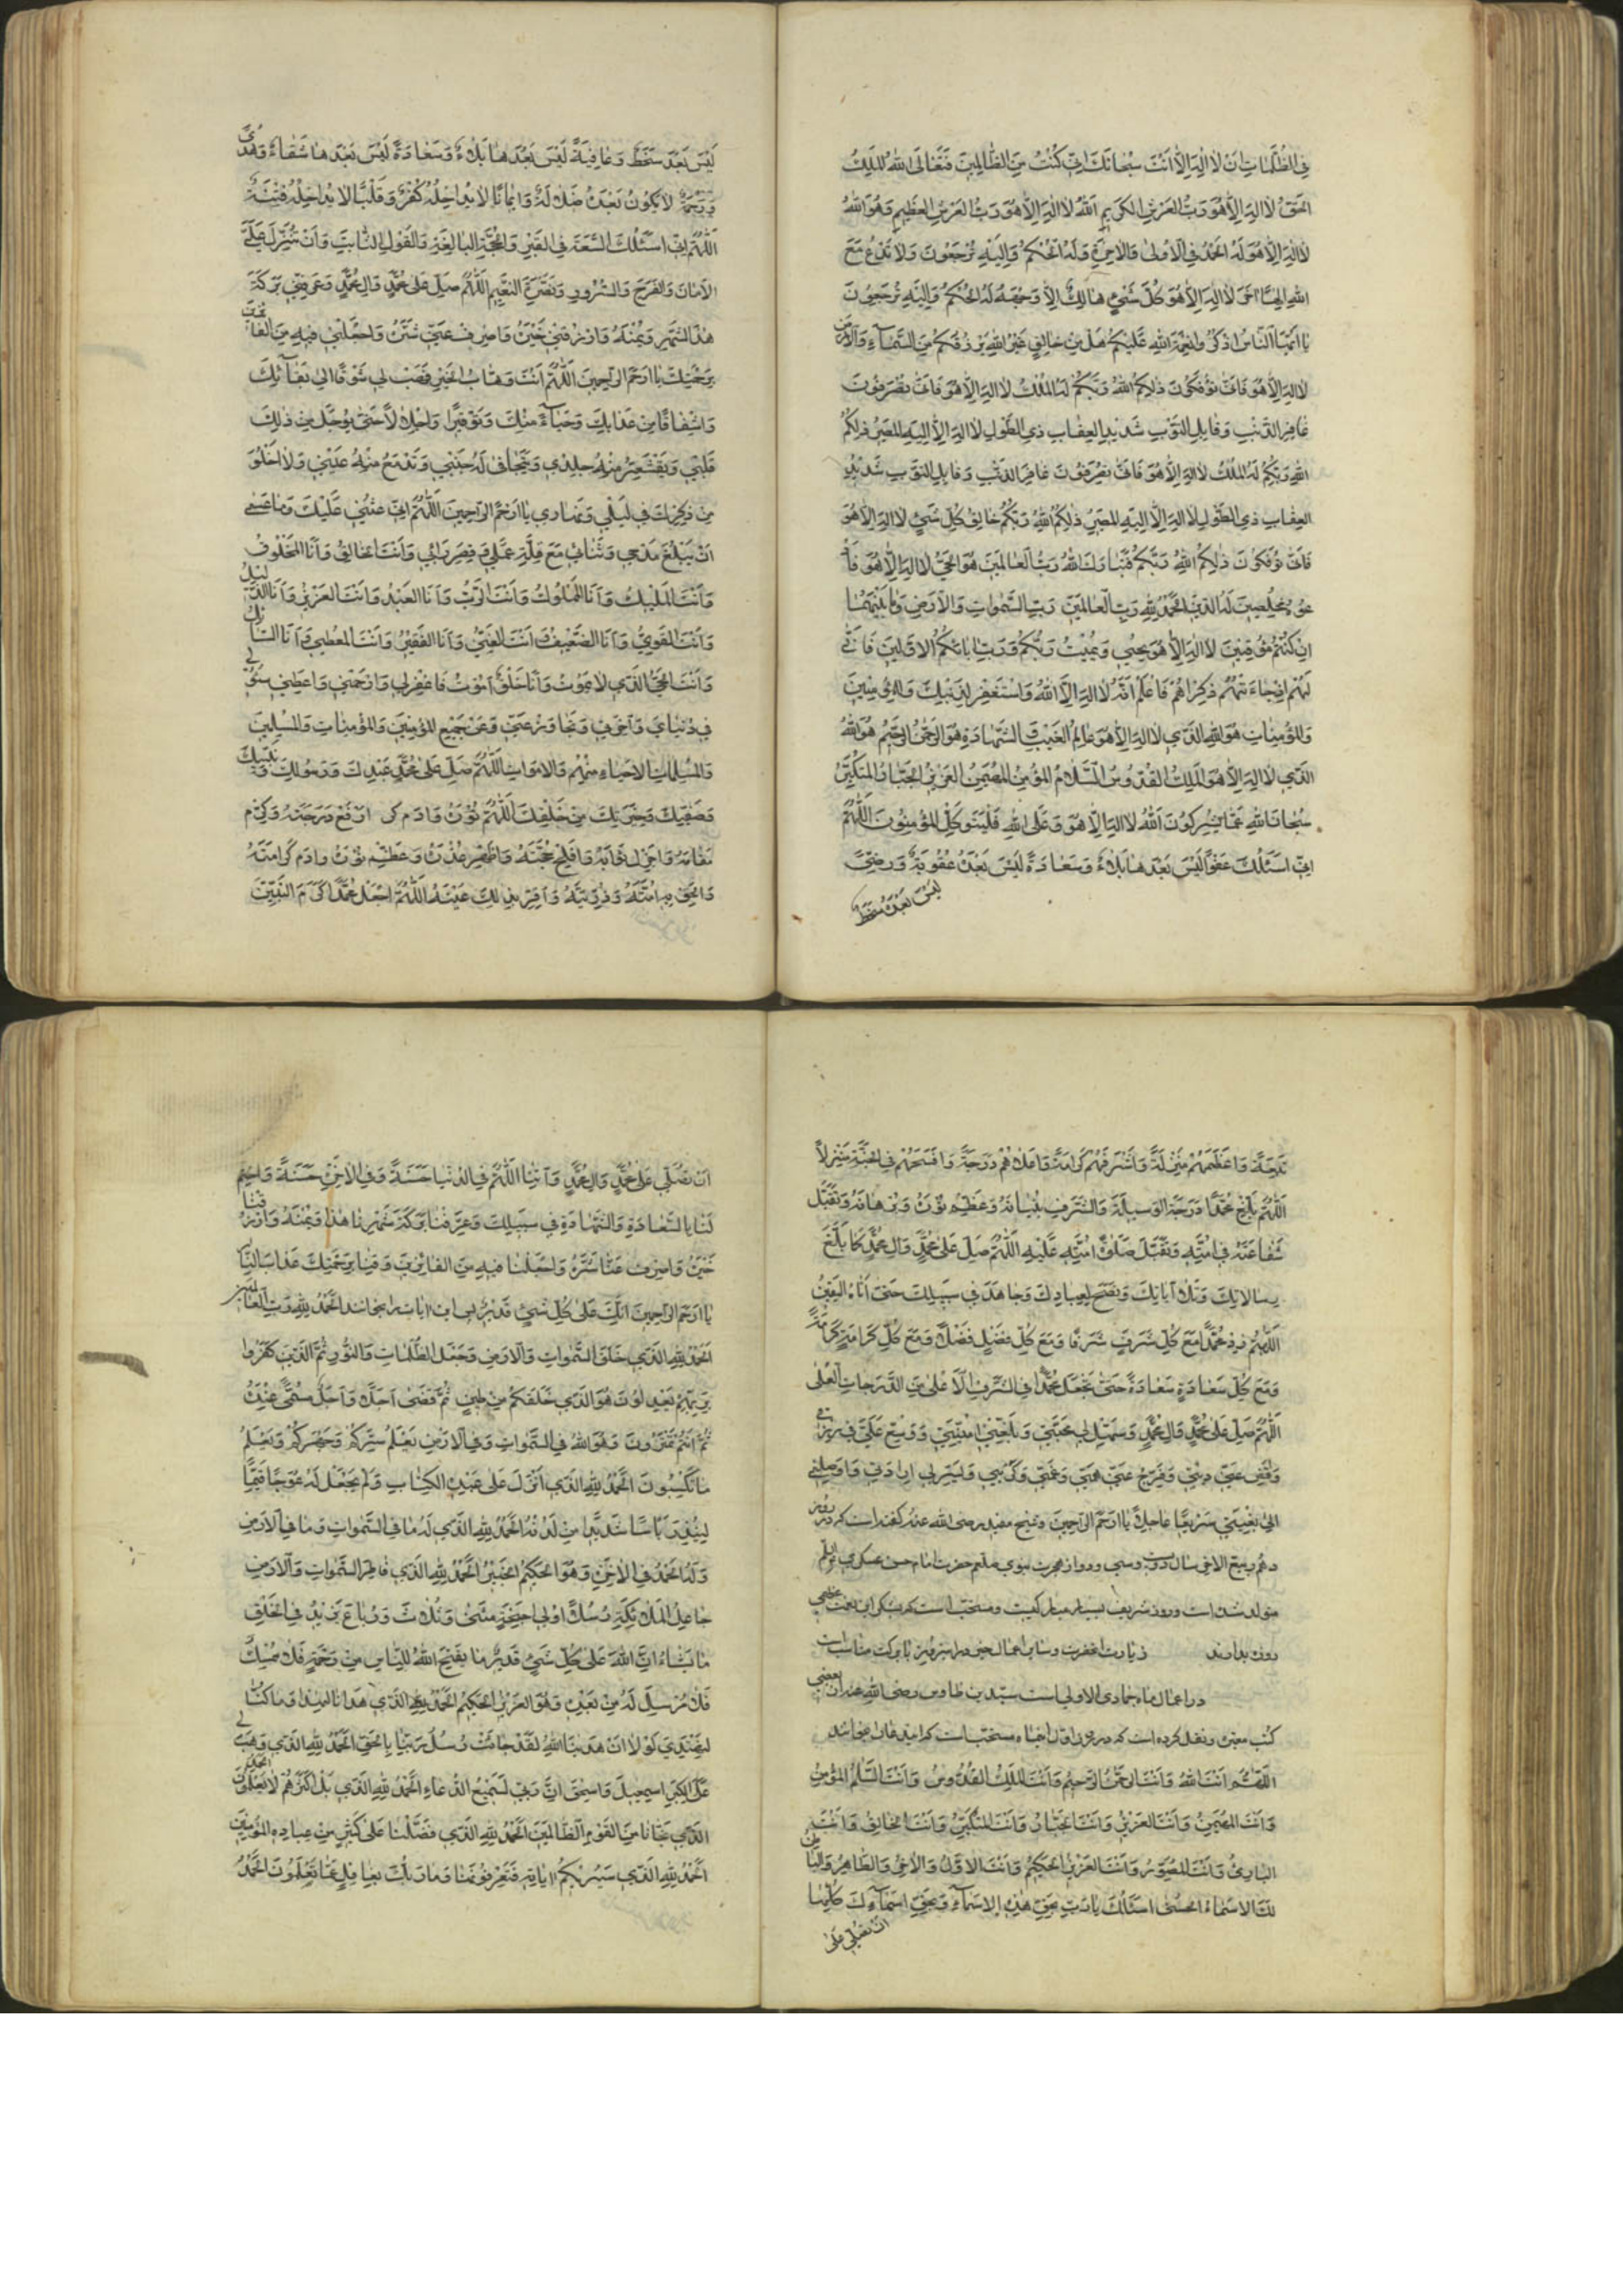 في الظُّلُمَاتِ اَنْ لَا اِلٰهَ اِلَّا اَنْتَ سُبْحَانَكَ اِنّي كُنْتُ مِنَ الظَّالِمِينَ فَتَعَالَى اللهُ المَلِكُ
الحَقُّ لَا اِلٰهَ اِلَّا هُوَ رَبُّ العَرْشِ الكَرِيمِ اَللهُ لَا اِلٰهَ اِلَّا هُوَ رَبُّ العَرْشِ العَظِيمِ وَهُوَ اللهُ
لَا اِلٰهَ اِلَّا هُوَ لَهُ الحَمْدُ فِي الْاُولىٰ وَالاخِرَةِ وَلَهُ الحُكْمُ وَاِلَيْهِ تُرْجَعُونَ وَلَا تَدْعُ مَعَ
اللهِ اِلهًا اخَرَ لَا اِلٰهَ اِلَّا هُوَ كُلُّ شَيْءٍ هَالِكٌ اِلَّا وَجْهَهُ لَهُ الحُكْمُ وَاِلَيْهِ تُرْجَعُونَ
يَا اَيُّهَا النَّاسُ اذْكُرُوا نِعْمَةَ اللهِ عَلَيْكُمْ هَلْ مِنْ خَالِقٍ غَيْرُ اللهِ يَرْزُقُكُمْ مِنَ السَّمَاءِ وَالْاَرْضِ
لَا اِلٰهَ اِلَّا هُوَ فَاَنّىٰ تُؤْفَكُونَ ذٰلِكُمُ اللهُ رَبُّكُمْ لَهُ المُلْكُ لَا اِلٰهَ اِلَّا هُوَ فَاَنّىٰ تُصْرَفُونَ
غَافِرِ الذَّنْبِ وَقَابِلِ التَّوْبِ شَدِيدِ العِقَابِ ذِي الطَّوْلِ لَا اِلٰهَ اِلَّا هُوَ اِلَيْهِ المَصِيرُ ذٰلِكُمُ
اللهُ رَبُّكُمْ لَهُ المُلْكُ لَا اِلٰهَ اِلَّا هُوَ فَاَنّىٰ تُصْرَفُونَ غَافِرِ الذَّنْبِ وَقَابِلِ التَّوْبِ شَدِيدِ
العِقَابِ ذِي الطَّوْلِ لَا اِلٰهَ اِلَّا هُوَ اِلَيْهِ المَصِيرُ ذٰلِكُمُ اللهُ رَبُّكُمْ خَالِقُ كُلِّ شَيْءٍ لَا اِلٰهَ اِلَّا هُوَ
فَاَنّىٰ تُؤْفَكُونَ ذٰلِكُمُ اللهُ رَبُّكُمْ فَتَبَارَكَ اللهُ رَبُّ العَالَمِينَ هُوَ الحَيُّ لَا اِلٰهَ اِلَّا هُوَ فَادْ
عُوهُ مُخْلِصِينَ لَهُ الدِّينَ الحَمْدُ لِلّٰهِ رَبِّ العَالَمِينَ رَبِّ السَّمٰوَاتِ وَالْاَرْضِ وَمَا بَيْنَهُمَا
اِنْ كُنْتُمْ مُوقِنِينَ لَا اِلٰهَ اِلَّا هُوَ يُحْيِي وَيُمِيتُ رَبُّكُمْ وَرَبُّ ابَائِكُمُ الْاَوَّلِينَ فَاَنّىٰ
لَهُمْ اِذَا جَاءَتْهُمْ ذِكْرَاهُمْ فَاعْلَمْ اَنَّهُ لَا اِلٰهَ اِلَّا اللهُ وَاسْتَغْفِرْ لِذَنْبِكَ وَلِلْمُؤْمِنِينَ
وَالمُؤْمِنَاتِ هُوَ اللهُ الَّذِي لَا اِلٰهَ اِلَّا هُوَ عَالِمُ الغَيْبِ وَالشَّهَادَةِ هُوَ الرَّحْمٰنُ الرَّحِيمُ هُوَ اللهُ
الَّذِي لَا اِلٰهَ اِلَّا هُوَ المَلِكُ القُدُّوسُ السَّلَامُ المُؤْمِنُ المُهَيْمِنُ العَزِيزُ الجَبَّارُ المُتَكَبِّرُ
سُبْحَانَ اللهِ عَمَّا يُشْرِكُونَ اَللهُ لَا اِلٰهَ اِلَّا هُوَ وَعَلَى اللهِ فَلْيَتَوَكَّلِ المُؤْمِنُونَ اَللّٰهُمَّ
اِنّي اَسْئَلُكَ عَفْوًا لَيْسَ بَعْدَهَا بَلَاءٌ وَسَعَادَةً لَيْسَ بَعْدَهُ عُقُوبَةٌ وَرِضًى
لَيْسَ بَعْدَهُ سَخَطٌ
لَيْسَ بَعْدَهُ سَخَطٌ وَعَافِيَةً لَيْسَ بَعْدَهَا بَلَاءٌ وَسَعَادَةً لَيْسَ بَعْدَهَا شَقَاءٌ وَهُدًى
لَا يَكُونُ بَعْدَهُ ضَلَالَةٌ وَاِيمَانًا لَا يُدَاخِلُهُ كُفْرٌ وَقَلْبًا لَا يُدَاخِلُهُ فِتْنَةٌ
اَللّٰهُمَّ اِنّي اَسْئَلُكَ السَّعَةَ فِي القَبْرِ وَالحُجَّةَ البَالِغَةَ وَالقَوْلَ الثَّابِتَ وَاَنْ تُنَزِّلَ عَلَيَّ
الْاَمَانَ وَالفَرَحَ وَالسُّرُورَ وَنَضْرَةَ النَّعِيمِ اَللّٰهُمَّ صَلِّ عَلىٰ مُحَمَّدٍ وَالِ مُحَمَّدٍ وَعَرِّفْنِي بَرَكَةَ
هٰذَا الشَّهْرِ وَيُمْنَهُ وَارْزُقْنِي خَيْرَهُ وَاصْرِفْ عَنّي شَرَّهُ وَاجْعَلْنِي فِيهِ مِنَ الفَائِزِينَ
بِرَحْمَتِكَ يَا اَرْحَمَ الرَّاحِمِينَ اَللّٰهُمَّ اَنْتَ وَهَّابُ الخَيْرِ فَهَبْ لِي شَوْقًا اِلىٰ لِقَائِكَ
وَاِشْفَاقًا مِنْ عَذَابِكَ وَحَيَاءً مِنْكَ وَتَوْقِيرًا وَاِجْلَالًا حَتّىٰ يَوْجَلَ مِنْ ذٰلِكَ
قَلْبِي وَيَقْشَعِرَّ مِنْهُ جِلْدِي وَيَتَجَافىٰ لَهُ جَنْبِي وَتَدْمَعَ مِنْهُ عَيْنِي وَلَا اَخْلُوَ
مِنْ ذِكْرِكَ فِي لَيْلِي وَنَهَارِي يَا اَرْحَمَ الرَّاحِمِينَ اَللّٰهُمَّ اِنّي اُثْنِي عَلَيْكَ وَمَا عَسىٰ
اَنْ يَبْلُغَ مَدْحِي وَثَنَائِي مَعَ قِلَّةِ عَمَلِي وَقِصَرِ رَأْيِي وَاَنْتَ الخَالِقُ وَاَنَا المَخْلُوقُ
وَاَنْتَ المَلِيكُ وَاَنَا المَمْلُوكُ وَاَنْتَ الرَّبُّ وَاَنَا العَبْدُ وَاَنْتَ العَزِيزُ وَاَنَا الذَّلِيلُ
وَاَنْتَ القَوِيُّ وَاَنَا الضَّعِيفُ وَاَنْتَ الغَنِيُّ وَاَنَا الفَقِيرُ وَاَنْتَ المُعْطِي وَاَنَا السَّائِلُ
وَاَنْتَ الحَيُّ الَّذِي لَا يَمُوتُ وَاَنَا خَلْقٌ اَمُوتُ فَاغْفِرْ لِي وَارْحَمْنِي وَاَعْطِنِي سُؤْلِي
فِي دُنْيَايَ وَاخِرَتِي وَتَجَاوَزْ عَنّي وَعَنْ جَمِيعِ المُؤْمِنِينَ وَالمُؤْمِنَاتِ وَالمُسْلِمِينَ
وَالمُسْلِمَاتِ الْاَحْيَاءِ مِنْهُمْ وَالْاَمْوَاتِ اَللّٰهُمَّ صَلِّ عَلىٰ مُحَمَّدٍ عَبْدِكَ وَرَسُولِكَ وَنَبِيِّكَ
وَصَفِيِّكَ وَخِيَرَتِكَ مِنْ خَلْقِكَ اَللّٰهُمَّ ارْفَعْ دَرَجَتَهُ وَكَرِّمْ
مَقَامَهُ وَاَجْزِلْ ثَوَابَهُ وَاَفْلِجْ حُجَّتَهُ وَاَظْهِرْ عُذْرَهُ وَعَظِّمْ نُورَهُ وَاَدِمْ كَرَامَتَهُ
وَاَلْحِقْ بِهِ اُمَّتَهُ وَذُرِّيَّتَهُ وَاَقِرَّ بِذٰلِكَ عَيْنَهُ اَللّٰهُمَّ اجْعَلْ مُحَمَّدًا اَكْرَمَ النَّبِيِّينَ
تَبَعًا وَاَعْظَمَهُمْ مَنْزِلَةً وَاَشْرَفَهُمْ كَرَامَةً وَاَعْلَاهُمْ دَرَجَةً وَاَفْسَحَهُمْ فِي الجَنَّةِ مَنْزِلًا
اَللّٰهُمَّ بَلِّغْ مُحَمَّدًا دَرَجَةَ الوَسِيلَةِ وَشَرِّفْ بُنْيَانَهُ وَعَظِّمْ نُورَهُ وَبُرْهَانَهُ وَتَقَبَّلْ
شَفَاعَتَهُ فِي اُمَّتِهِ وَتَقَبَّلْ صَلَاةَ اُمَّتِهِ عَلَيْهِ اَللّٰهُمَّ صَلِّ عَلىٰ مُحَمَّدٍ وَالِ مُحَمَّدٍ كَمَا بَلَّغَ
رِسَالَاتِكَ وَتَلَا ايَاتِكَ وَنَصَحَ لِعِبَادِكَ وَجَاهَدَ فِي سَبِيلِكَ حَتّىٰ اَتَاهُ اليَقِينُ
اَللّٰهُمَّ زِدْ مُحَمَّدًا مَعَ كُلِّ شَرَفٍ شَرَفًا وَمَعَ كُلِّ فَضْلٍ فَضْلًا وَمَعَ كُلِّ كَرَامَةٍ كَرَامَةً
وَمَعَ كُلِّ سَعَادَةٍ سَعَادَةً حَتّىٰ تَجْعَلَ مُحَمَّدًا فِي الشَّرَفِ الْاَعْلىٰ مِنَ الدَّرَجَاتِ العُلىٰ
اَللّٰهُمَّ صَلِّ عَلىٰ مُحَمَّدٍ وَالِ مُحَمَّدٍ وَسَهِّلْ لِي مَحَبَّتِي وَبَلِّغْنِي اُمْنِيَّتِي وَوَسِّعْ عَلَيَّ فِي رِزْقِي
وَاقْضِ عَنّي دَيْنِي وَفَرِّجْ عَنّي هَمّي وَغَمّي وَكَرْبِي وَيَسِّرْ لِي اِرَادَتِي وَاَوْصِلْنِي
اِلىٰ بُغْيَتِي سَرِيعًا عَاجِلًا يَا اَرْحَمَ الرَّاحِمِينَ وشيخ مفيد رضى الله عنه گفته است كه در روز
دهم ربيع الاخر سال دويست وسى ودو از هجرت نبوى صلعم حضرت امام حسن عسكرى
متولد شده است وروز شريف بسيار مباركيست ومستحب است كه بشكر اين نعمت عظمى
روزه بدارند زيارت انحضرت وساير اعمال خير در اين روز با بركت مناسب است
در اعمال ماه جمادى الاولى است سيد بن طاوس رضى الله عنه از بعضى
كتب معتبره نقل كرده است كه در روز اول اين ماه مستحب است كه اين دعا را بخوانند
اَللّٰهُمَّ اَنْتَ اللهُ وَاَنْتَ الرَّحْمٰنُ الرَّحِيمُ وَاَنْتَ المَلِكُ القُدُّوسُ وَاَنْتَ السَّلَامُ المُؤْمِنُ
وَاَنْتَ المُهَيْمِنُ وَاَنْتَ العَزِيزُ وَاَنْتَ الجَبَّارُ وَاَنْتَ المُتَكَبِّرُ وَاَنْتَ الخَالِقُ وَاَنْتَ
البَارِئُ وَاَنْتَ المُصَوِّرُ وَاَنْتَ العَزِيزُ الحَكِيمُ وَاَنْتَ الْاَوَّلُ وَالْاخِرُ وَالظَّاهِرُ وَالبَاطِنُ
لَكَ الْاَسْمَاءُ الحُسْنىٰ اَسْئَلُكَ يَا رَبِّ بِحَقِّ هٰذِهِ الْاَسْمَاءِ وَبِحَقِّ اَسْمَائِكَ كُلِّهَا
اَنْ تُصَلِّيَ عَلىٰ
اَنْ تُصَلِّيَ عَلىٰ مُحَمَّدٍ وَالِ مُحَمَّدٍ وَاتِنَا اَللّٰهُمَّ فِي الدُّنْيَا حَسَنَةً وَفِي الْاخِرَةِ حَسَنَةً وَاخْتِمْ
لَنَا بِالسَّعَادَةِ وَالشَّهَادَةِ فِي سَبِيلِكَ وَعَرِّفْنَا بَرَكَةَ شَهْرِنَا هٰذَا وَيُمْنَهُ وَارْزُقْنَا
خَيْرَهُ وَاصْرِفْ عَنَّا شَرَّهُ وَاجْعَلْنَا فِيهِ مِنَ الفَائِزِينَ وَقِنَا بِرَحْمَتِكَ عَذَابَ النَّارِ
يَا اَرْحَمَ الرَّاحِمِينَ اِنَّكَ عَلىٰ كُلِّ شَيْءٍ قَدِيرٌ پس اين ايات را بخواند اَلحَمْدُ لِلّٰهِ رَبِّ العَالَمِينَ
اَلحَمْدُ لِلّٰهِ الَّذِي خَلَقَ السَّمٰوَاتِ وَالْاَرْضَ وَجَعَلَ الظُّلُمَاتِ وَالنُّورَ ثُمَّ الَّذِينَ كَفَرُوا
بِرَبِّهِمْ يَعْدِلُونَ هُوَ الَّذِي خَلَقَكُمْ مِنْ طِينٍ ثُمَّ قَضىٰ اَجَلًا وَاَجَلٌ مُسَمًّى عِنْدَهُ
ثُمَّ اَنْتُمْ تَمْتَرُونَ وَهُوَ اللهُ فِي السَّمٰوَاتِ وَفِي الْاَرْضِ يَعْلَمُ سِرَّكُمْ وَجَهْرَكُمْ وَيَعْلَمُ
مَا تَكْسِبُونَ اَلحَمْدُ لِلّٰهِ الَّذِي اَنْزَلَ عَلىٰ عَبْدِهِ الكِتَابَ وَلَمْ يَجْعَلْ لَهُ عِوَجًا قَيِّمًا
لِيُنْذِرَ بَأْسًا شَدِيدًا مِنْ لَدُنْهُ اَلحَمْدُ لِلّٰهِ الَّذِي لَهُ مَا فِي السَّمٰوَاتِ وَمَا فِي الْاَرْضِ
وَلَهُ الحَمْدُ فِي الْاخِرَةِ وَهُوَ الحَكِيمُ الخَبِيرُ اَلحَمْدُ لِلّٰهِ الَّذِي فَاطِرِ السَّمٰوَاتِ وَالْاَرْضِ
جَاعِلِ المَلَائِكَةِ رُسُلًا اُولِي اَجْنِحَةٍ مَثْنىٰ وَثُلَاثَ وَرُبَاعَ يَزِيدُ فِي الخَلْقِ
مَا يَشَاءُ اِنَّ اللهَ عَلىٰ كُلِّ شَيْءٍ قَدِيرٌ مَا يَفْتَحِ اللهُ لِلنَّاسِ مِنْ رَحْمَةٍ فَلَا مُمْسِكَ
فَلَا مُرْسِلَ لَهُ مِنْ بَعْدِهِ وَهُوَ العَزِيزُ الحَكِيمُ اَلحَمْدُ لِلّٰهِ الَّذِي هَدَانَا لِهٰذَا وَمَا كُنَّا
لِنَهْتَدِيَ لَوْلَا اَنْ هَدَانَا اللهُ لَقَدْ جَائَتْ رُسُلُ رَبِّنَا بِالحَقِّ اَلحَمْدُ لِلّٰهِ الَّذِي وَهَبَ لِي
عَلَى الكِبَرِ اِسْمٰعِيلَ وَاِسْحٰقَ اِنَّ رَبّي لَسَمِيعُ الدُّعَاءِ اَلحَمْدُ لِلّٰهِ الَّذِي بَلْ اَكْثَرُهُمْ لَا يَعْلَمُونَ الحمد لله
الَّذِي نَجَّانَا مِنَ القَوْمِ الظَّالِمِينَ اَلحَمْدُ لِلّٰهِ الَّذِي فَضَّلَنَا عَلىٰ كَثِيرٍ مِنْ عِبَادِهِ المُؤْمِنِينَ
اَلحَمْدُ لِلّٰهِ الَّذِي سَيُرِيكُمْ ايَاتِهِ فَتَعْرِفُونَهَا وَمَا رَبُّكَ بِغَافِلٍ عَمَّا تَعْمَلُونَ اَلحَمْدُ